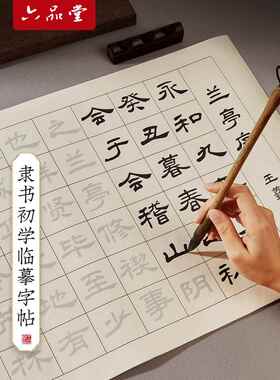 六品堂
隶书初学临摹字帖
兰亭序
王羲
永和九
癸丑暮春初
会于会稽山阴
兰亭修禊事
也
贤毕至少
有
林